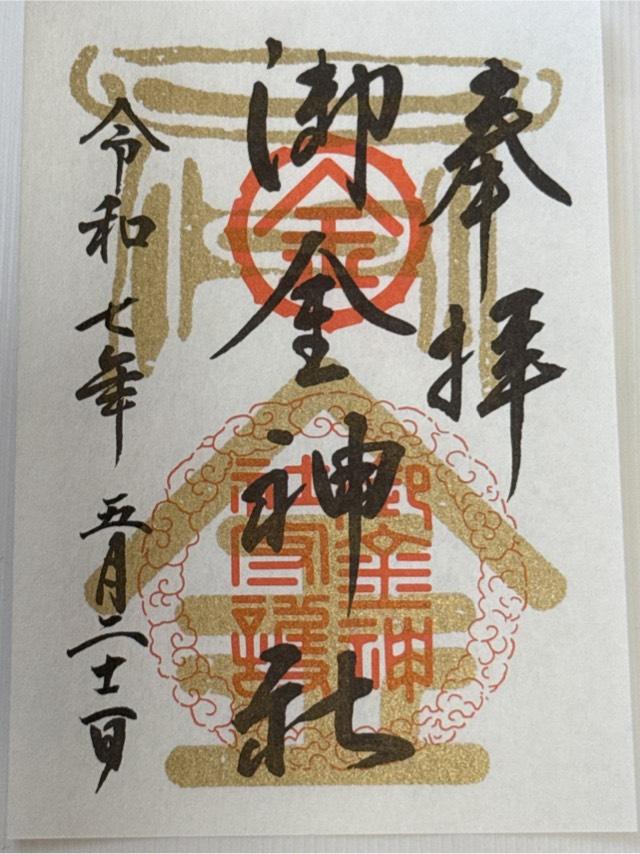 奉拝
御金神社
金
御金神
社守護
令和七年 五月二十一日